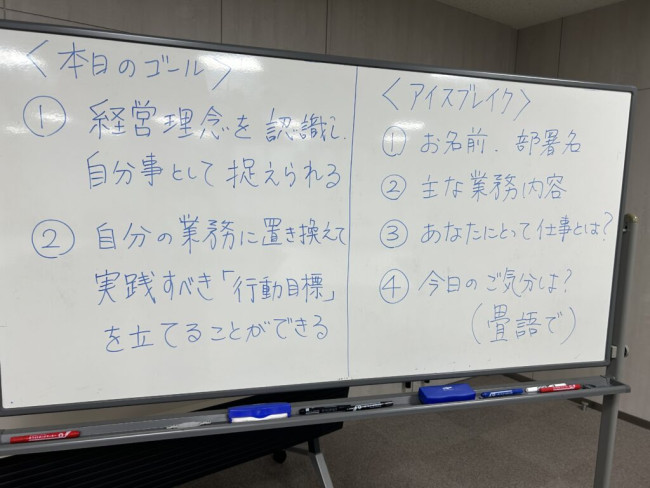 〈本日のゴール〉
① 経営理念を認識し、
自分事として捉えられる
② 自分の業務に置き換えて
実践すべき「行動目標」
を立てることができる
〈アイスブレイク〉
① お名前、部署名
② 主な業務内容
③ あなたにとって仕事とは?
④ 今日のご気分は?
(畳語で)